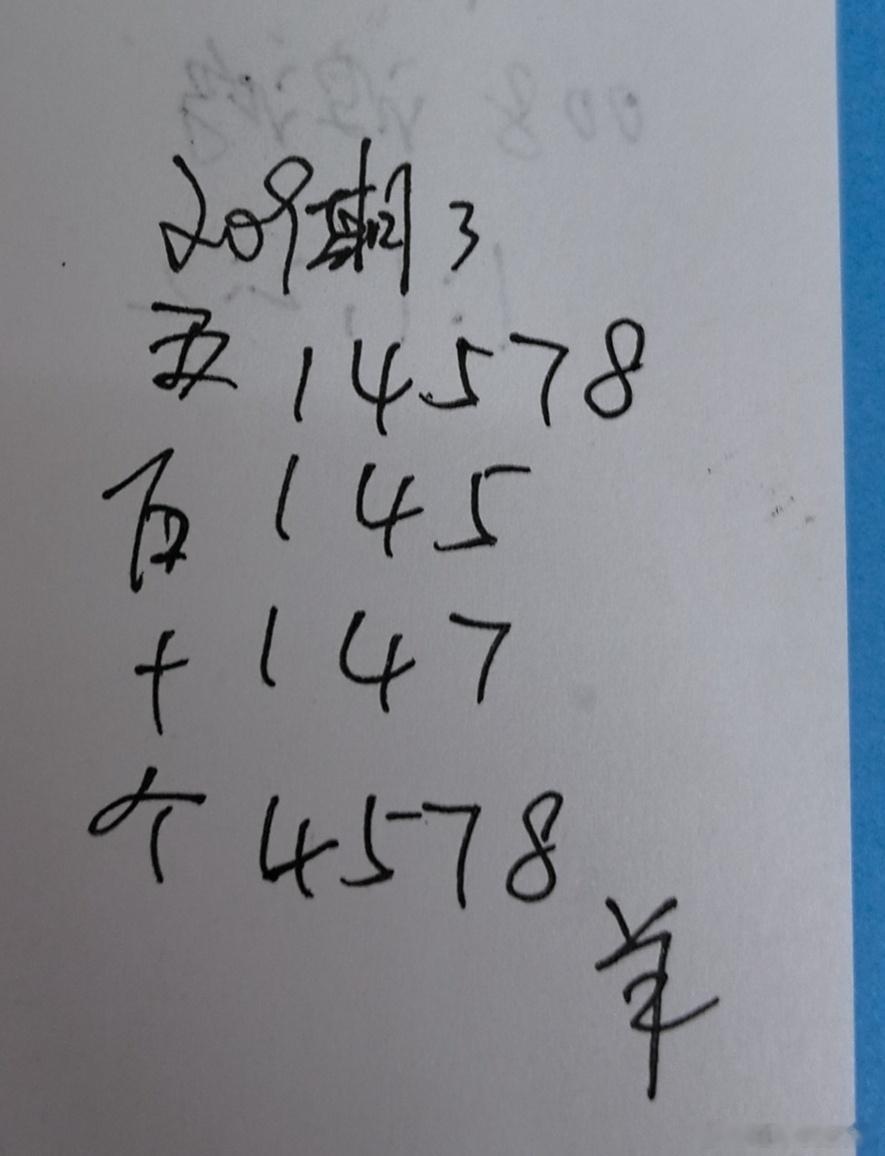 209期 3
双 14578
百 145
十 147
个 4578
单